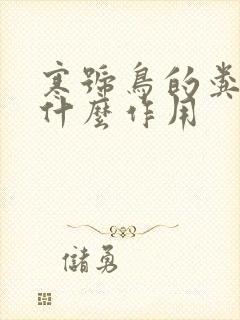 寒號鳥的糞
什麼作用
儲勇